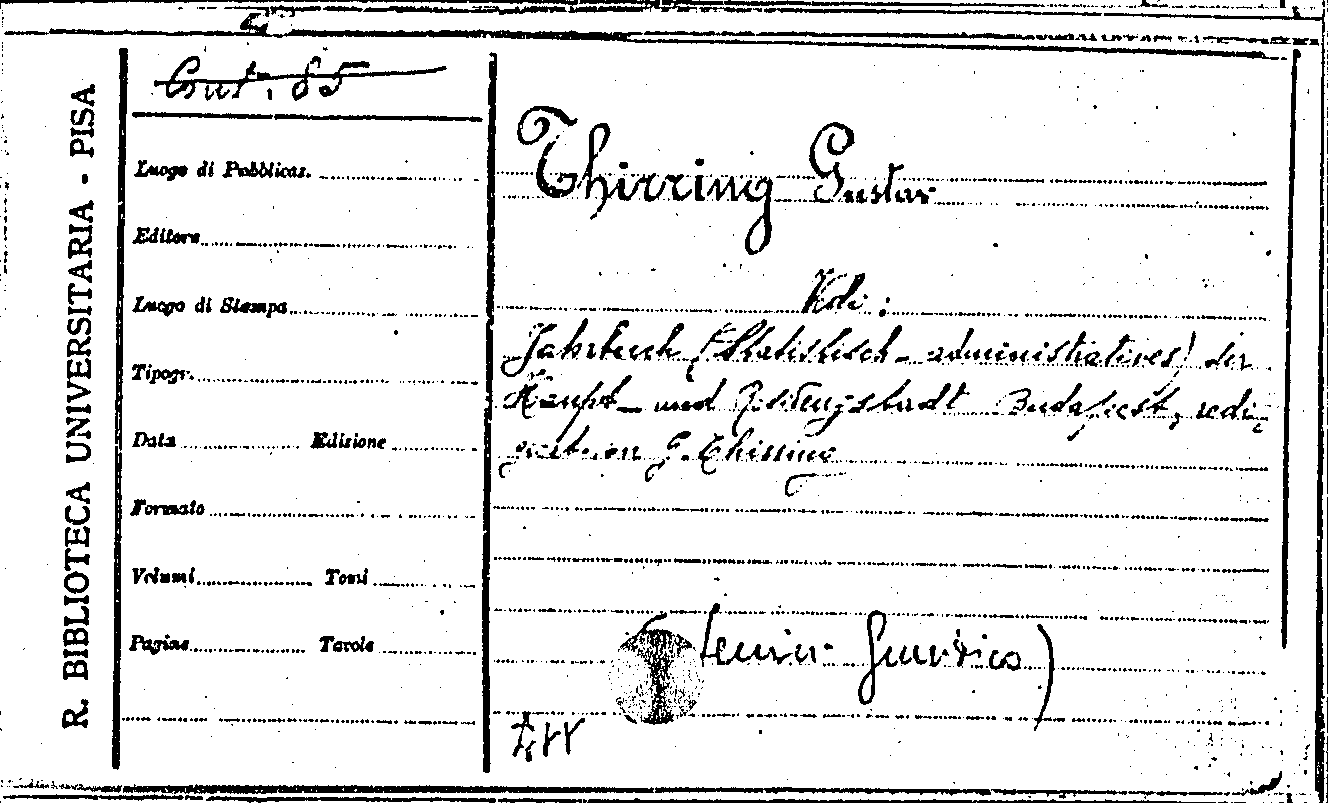 R. BIBLIOTECA UNIVERSITARIA - PISA
Cont. 85
Luogo di Pubblicaz.
Editore
Luogo di Stampa
Tipogr.
Data Edizione
Formato
Volumi Tomi
Pagine Tavole
Thirring Gustav
Vedi:
Jahrbuch (Statistisch-administratives) der
Haupt- und Residenzstadt Budapest, redi-
giert von G. Thirring
(Semin. Giuridico)